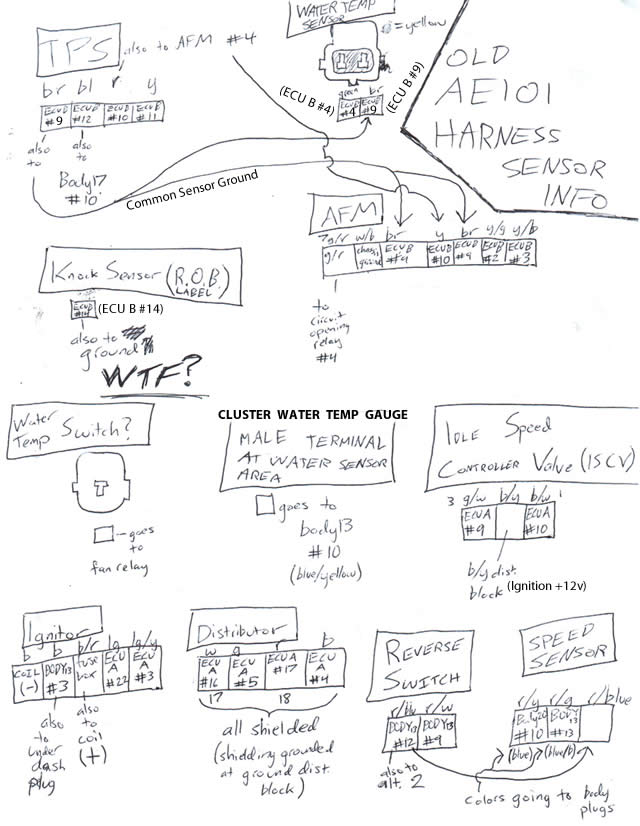 TPS
also to AFM #4
br bl r y
ECUB #9 ECUB #12 ECUB #10 ECUB #11
also to
also to
Body17 #10
Common Sensor Ground
WATER TEMP SENSOR
=yellow
(ECU B #4)
(ECU B #9)
green br
ECUB #4 ECUB #9
OLD
AE101
HARNESS
SENSOR
INFO
AFM
g/r w/b br y br y/g y/b
g/r chassis ground ECUB #9 ECUB #10 ECUB #9 ECUB #2 ECUB #3
to
circuit
opening
relay
#4
Knock Sensor (R.O.B. LABEL)
(ECU B #14)
also to
ground
WTF?
Water Temp Switch?
goes
to
fan relay
CLUSTER WATER TEMP GAUGE
MALE TERMINAL
AT WATER SENSOR
AREA
goes to
body13
#10
(blue/yellow)
Idle Speed
Controller Valve (ISCV)
3 g/w b/y b/w 1
ECUA #9 ECUA #10
b/y dist.
block (Ignition +12v)
Ignitor
b b b/r lg lg/y
COIL (-) BODY13 #3 fuse box ECU A #22 ECU A #3
also to under dash plug
also to coil (+)
Distributor
w g r b
ECU A #16 ECU A #5 ECUA #17 ECU A #4
17 18
all shielded
(shielding grounded
at ground dist.
block)
REVERSE
SWITCH
r/w
BODY13 #12 BODY13 #9
also to
alt. 2
SPEED
SENSOR
r/y r/g r/blue
Body20 #10 BODY #13
(blue) (blue/b)
colors going to body
plugs